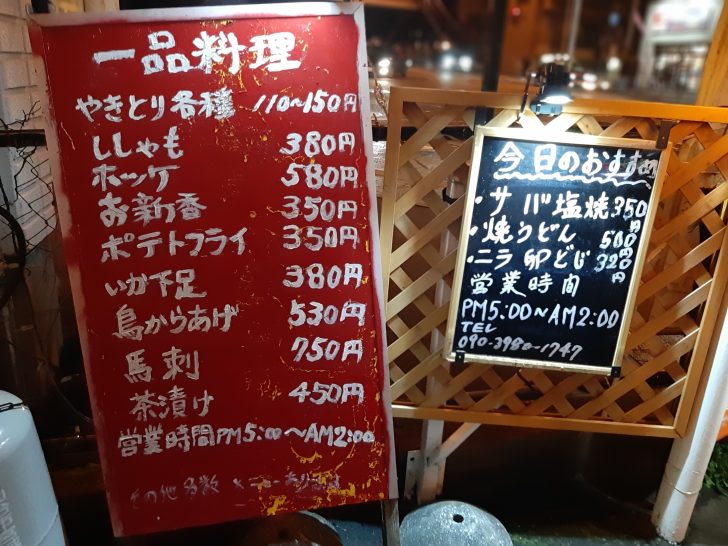 一品料理
やきとり各種 110~150円
ししゃも 380円
ホッケ 580円
お新香 350円
ポテトフライ 350円
いか下足 380円
鳥からあげ 530円
馬刺 750円
茶漬け 450円
営業時間PM5:00~AM2:00
その他多数 メニューあります
今日のおすすめ
・サバ塩焼350円
・焼うどん 500円
・ニラ卵とじ 320円
営業時間
PM5:00~AM2:00
TEL
090-3980-1747